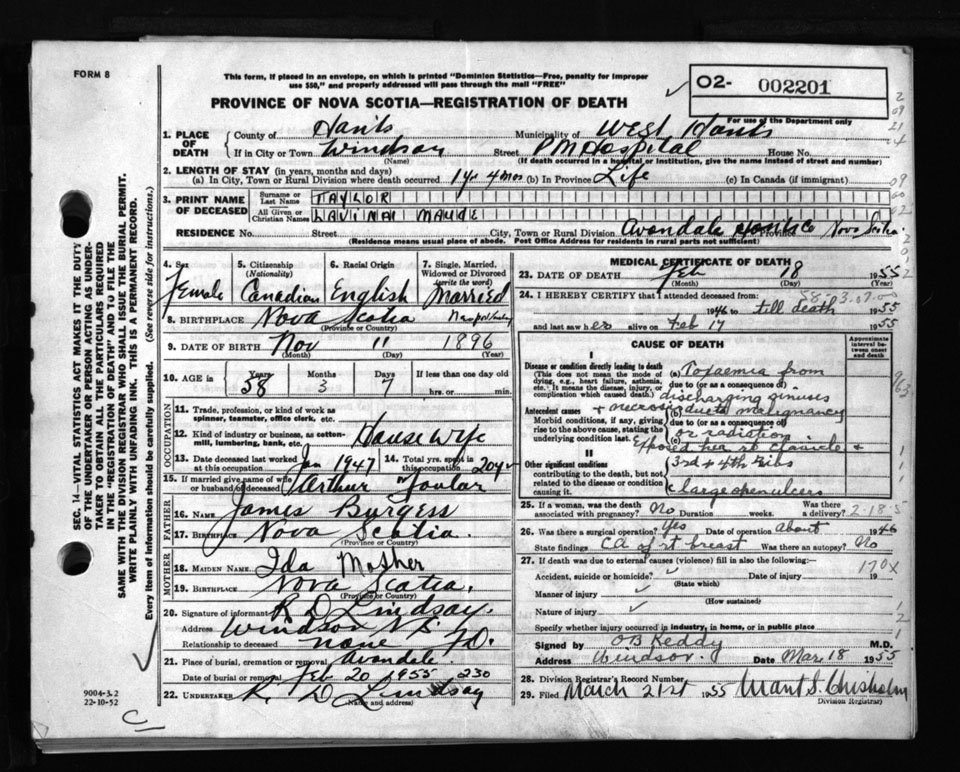 FORM 8
This form, if placed in an envelope, on which is printed "Dominion Statistics—Free, penalty for improper
use $50," and properly addressed will pass through the mail "FREE"
O2- 002201
For use of the Department only
PROVINCE OF NOVA SCOTIA—REGISTRATION OF DEATH
1. PLACE OF DEATH
County of Hants Municipality of West Hants
If in City or Town Windsor Street P M Hospital House No.
(Name) (If death occurred in a hospital or institution, give the name instead of street and number)
2. LENGTH OF STAY (in years, months and days)
(a) In City, Town or Rural Division where death occurred 1 yr 4 mos (b) In Province Life (c) In Canada (if immigrant)
3. PRINT NAME OF DECEASED
Surname or Last Name TAYLOR
All Given or Christian Names LAVINAI MAUDE
RESIDENCE No. Street City, Town or Rural Division Avondale Hants Co Province Nova Scotia
(Residence means usual place of abode. Post Office Address for residents in rural parts not sufficient)
4. Sex Female
5. Citizenship (Nationality) Canadian
6. Racial Origin English
7. Single, Married, Widowed or Divorced (write the word) Married
8. BIRTHPLACE Nova Scotia
(Province or Country)
9. DATE OF BIRTH Nov 11 1896
(Month) (Day) (Year)
10. AGE in Years 58 Months 3 Days 7 If less than one day old
hrs. or min.
OCCUPATION
11. Trade, profession, or kind of work as spinner, teamster, office clerk, etc.
12. Kind of industry or business, as cotton-mill, lumbering, bank, etc. House Wife
13. Date deceased last worked at this occupation Jan 1947
14. Total years spent in this occupation 20 yr
15. If married give name of wife or husband of deceased Arthur Taylor
FATHER
16. Name James Burgess
17. Birthplace Nova Scotia
(Province or Country)
MOTHER
18. MAIDEN NAME Ida Mosher
19. BIRTHPLACE Nova Scotia.
(Province or Country)
20. Signature of informant R D Lindsay.
Address Windsor N S.
Relationship to deceased none F.D.
21. Place of burial, cremation or removal Avondale
Date of burial or removal Feb 20 1955 230
22. UNDERTAKER R. D Lindsay
(Name and address)
MEDICAL CERTIFICATE OF DEATH
23. DATE OF DEATH Feb 18 1955
(Month) (Day) (Year)
24. I HEREBY CERTIFY that I attended deceased from:
1946 to till death 1955
and last saw her alive on Feb 17 1955
CAUSE OF DEATH
Approximate interval between onset and death
I
Disease or condition directly leading to death
(This does not mean the mode of dying, e.g., heart failure, asthenia, etc. It means the disease, injury, or complication which caused death.)
(a) Toxaemia from
due to (or as a consequence of)
discharging sinuses
Antecedent causes
Morbid conditions, if any, giving rise to the above cause, stating the underlying condition last.
+ necrosis (b) due to malignancy
due to (or as a consequence of)
or radiation
(c) Exposed head rt clavicle +
II
Other significant conditions
contributing to the death, but not related to the disease or condition causing it.
3rd + 4th ribs
large open ulcers
25. If a woman, was the death associated with pregnancy? No Duration weeks. Was there a delivery?
2-18-5
26. Was there a surgical operation? Yes Date of operation About 1946
State findings CA of rt breast Was there an autopsy? No
27. If death was due to external causes (violence) fill in also the following:—
170X
Accident, suicide or homicide? Date of injury 19
(State which)
Manner of injury
(How sustained)
Nature of injury
Specify whether injury occurred in industry, in home, or in public place
Signed by OB Keddy M.D.
Address Windsor. Date Mar 18 1955
28. Division Registrar's Record Number
29. Filed March 21st 1955 Chisholm
Division Registrar)
SEC. 14—VITAL STATISTICS ACT MAKES IT THE DUTY
OF THE UNDERTAKER OR PERSON ACTING AS UNDER-
TAKER TO OBTAIN ALL THE PARTICULARS REQUIRED
IN THE "REGISTRATION OF DEATH" AND TO FILE THE
SAME WITH THE DIVISION REGISTRAR WHO SHALL ISSUE THE BURIAL PERMIT.
WRITE PLAINLY WITH UNFADING INK. THIS IS A PERMANENT RECORD.
Every item of information should be carefully supplied. (See reverse side for instructions.)
9004-3.2
22-10-52